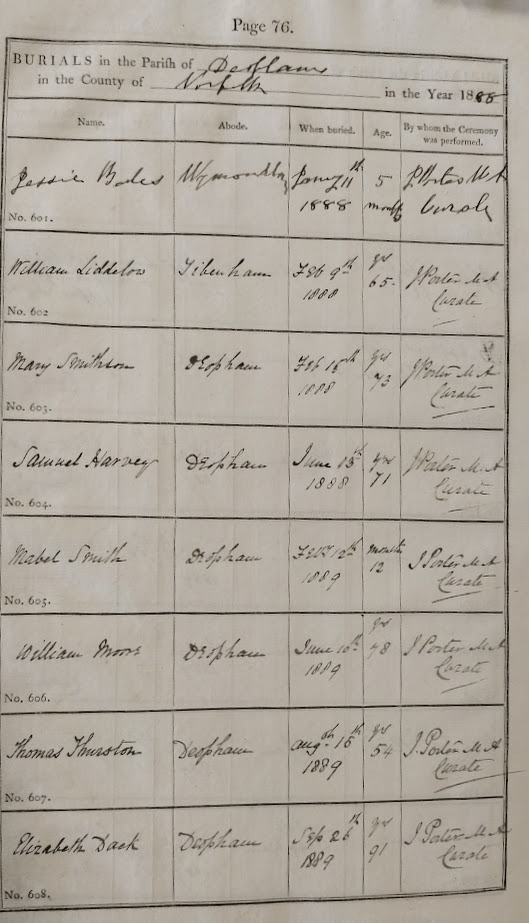 Page 76.
BURIALS in the Parish of Deopham
in the County of Norfolk in the Year 1888
Name. Abode. When buried. Age. By whom the Ceremony was performed.
Jessie Wymondham 11th 5 J Porter M A
1888 months Curate
No. 601.
William Liddelow Tibenham Feb 9th yrs J Porter M A
1888 65 Curate
No. 602
Mary Smithson Deopham Feb yrs J Porter M A
1888 73 Curate
No. 603.
Samuel Harvey Deopham June yrs J Porter M A
1888 71 Curate
No. 604.
Mabel Smith Deopham 12th months J Porter M A
1889 12 Curate
No. 605.
William Moore Deopham June 10th yrs J Porter M A
1889 78 Curate
No. 606.
Thomas Thurston Deopham Augst yrs J. Porter M A
1889 54 Curate
No. 607.
Elizabeth Dack Deopham Sep 26th yrs J Porter M A
1889 91 Curate
No. 608.